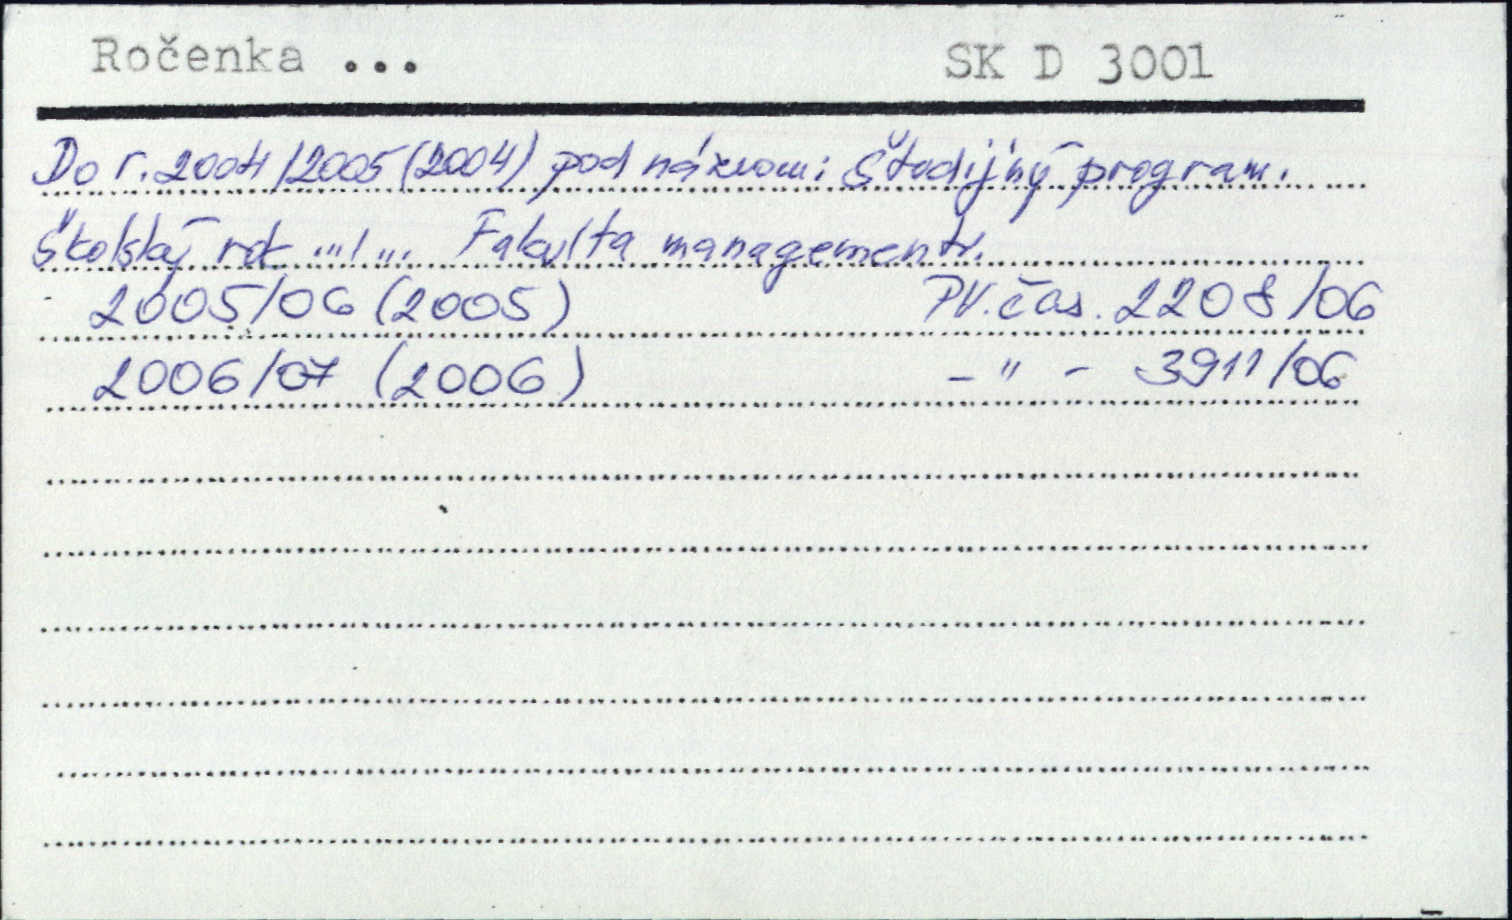 Ročenka ... SK D 3001
Do r. 2004/2005 (2004) pod názvom: Študijný program.
Školský rok .../... Fakulta managementu.
2005/06 (2005) PV. čas. 2208/06
2006/07 (2006) - " - 3911/06